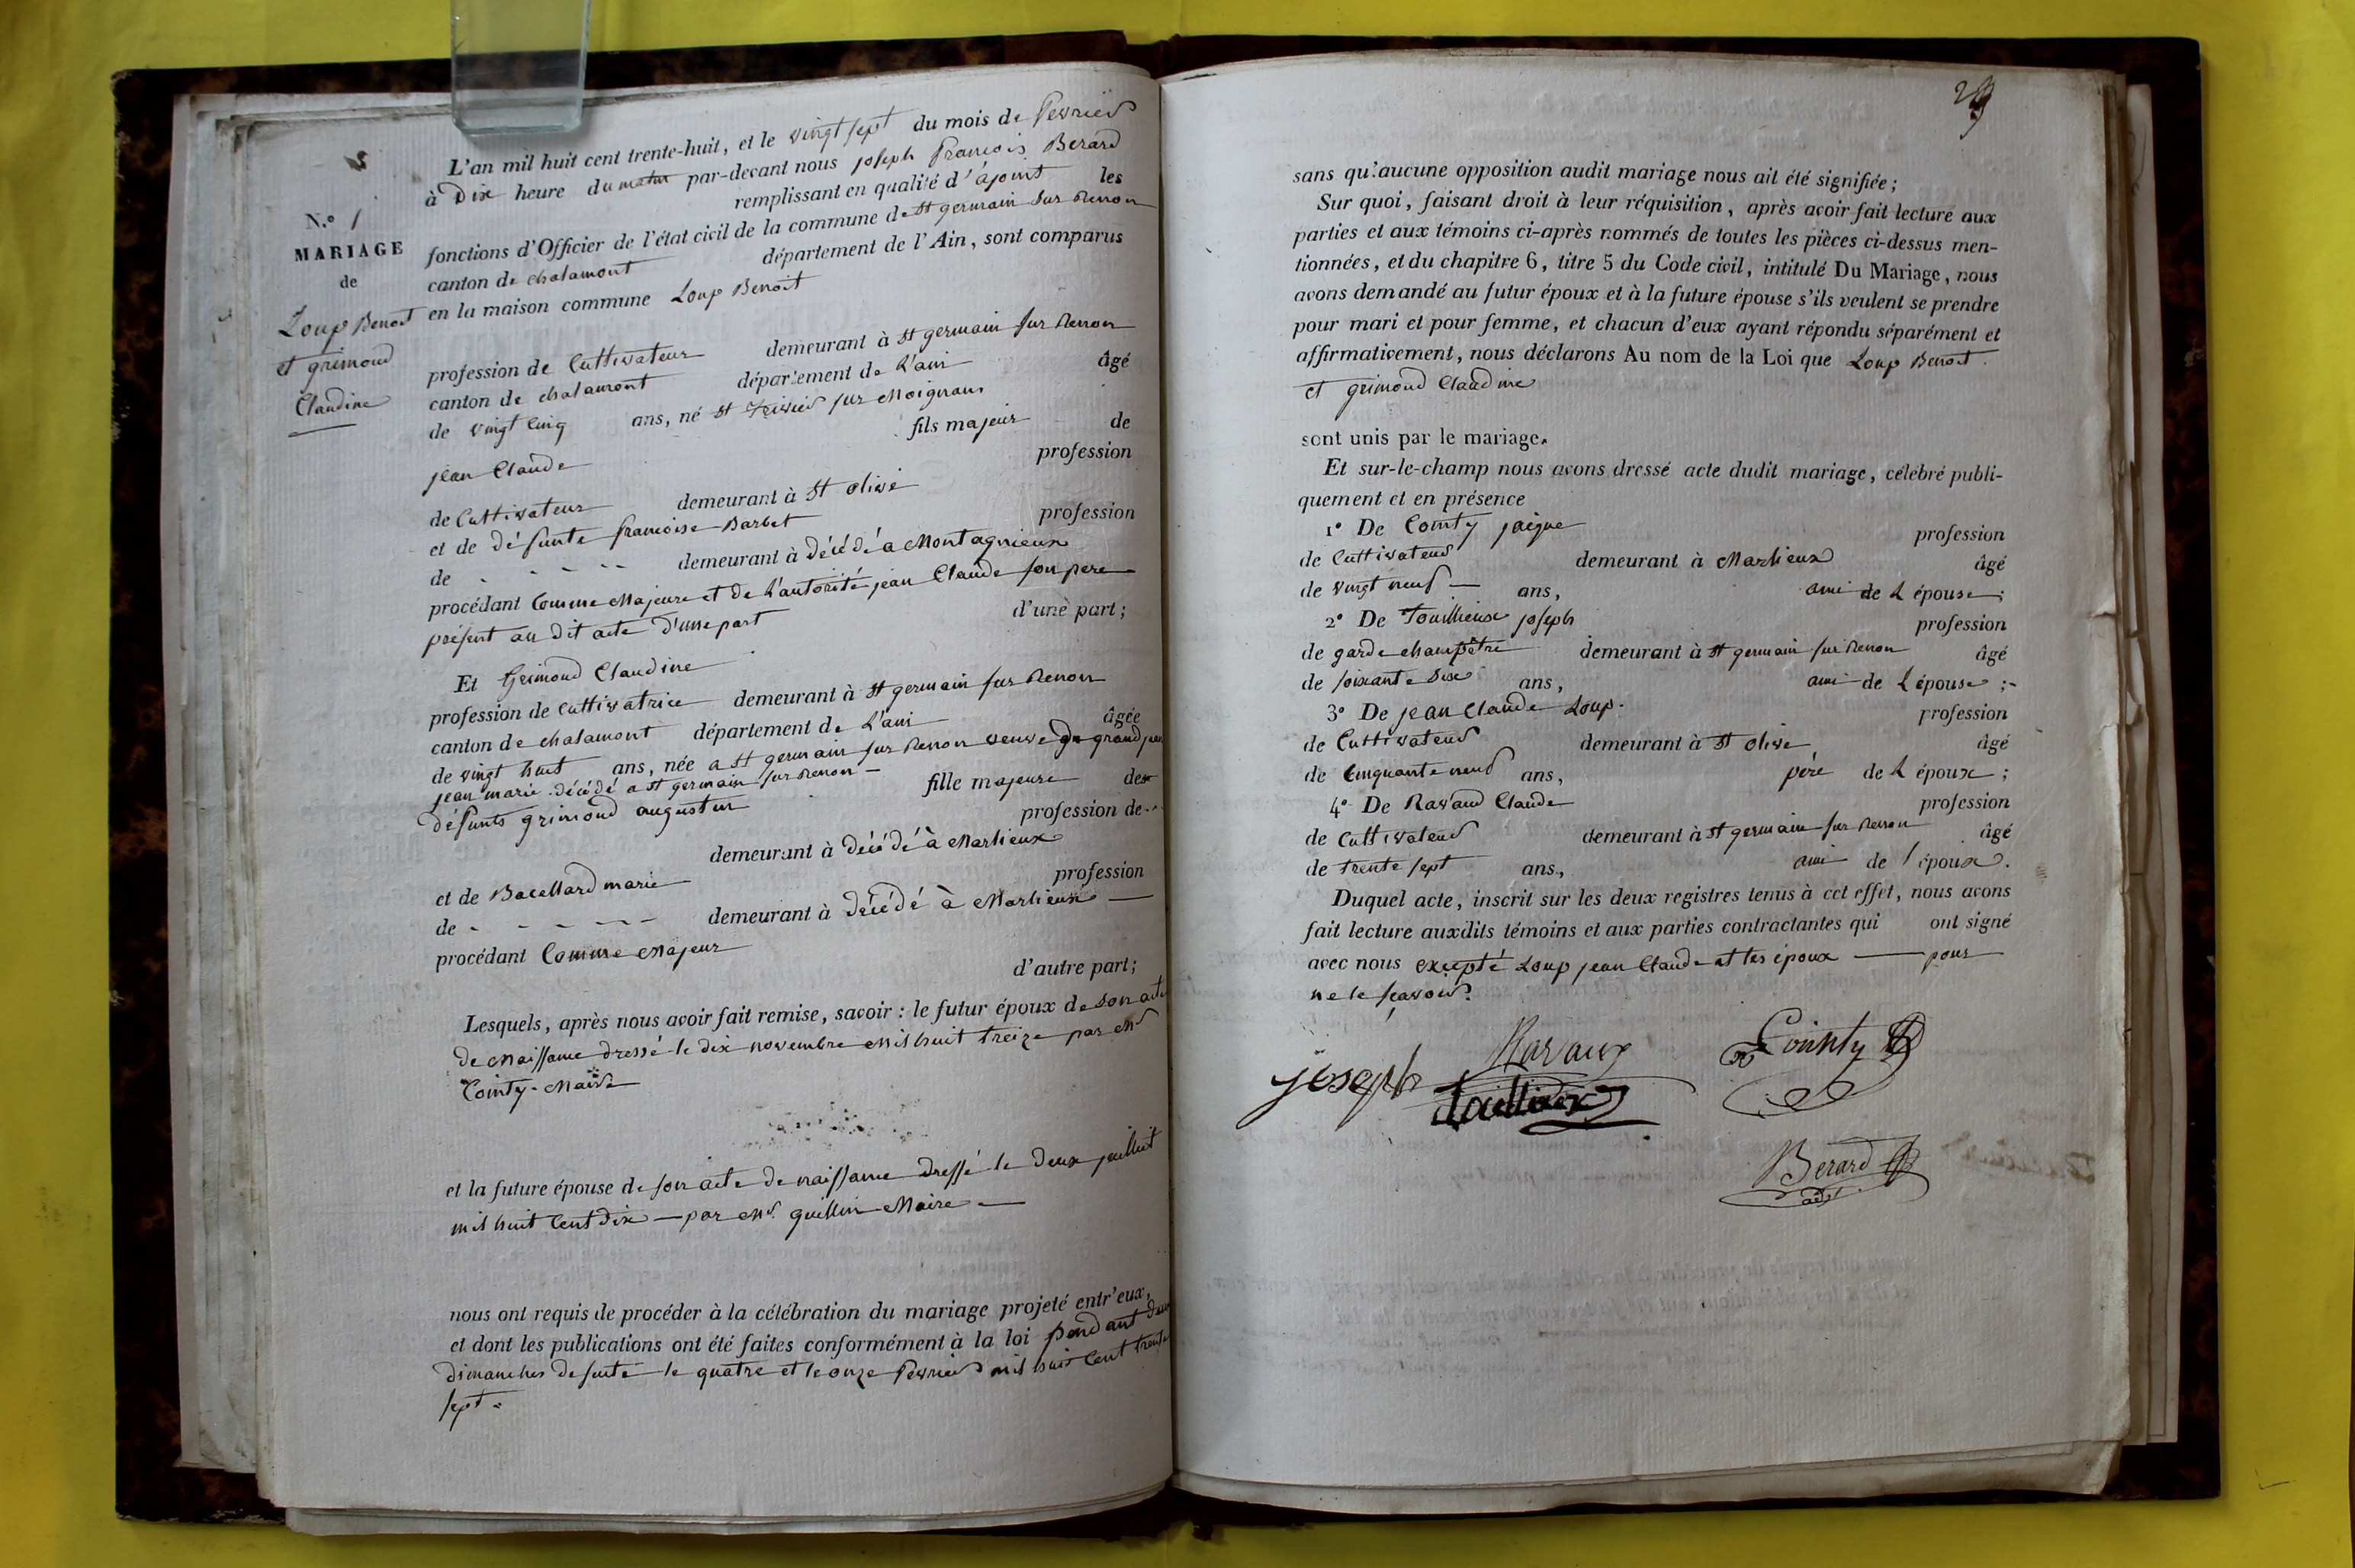 N.o 1
MARIAGE
de
Loup Benoit
et grimoud
Claudine
L'an mil huit cent trente-huit, et le vingt sept du mois de fevrier
à Dix heure du matin par-devant nous joseph francois Berard
remplissant en qualité d'ajoint les
fonctions d'Officier de l'état civil de la commune de St germain sur Renon
canton de chalamont département de l'Ain, sont comparus
en la maison commune Loup Benoit
profession de Cultivateur demeurant à St germain sur Renon
canton de chalamont département de L'ain âgé
de vingt cinq ans, né St Trivier sur Moignans
fils majeur de
jean Claude profession
de Cultivateur demeurant à St olive
et de défunte francoise Barbet profession
de - - - - - demeurant à décédé a Montagnieux
procédant Comme Majeure et de L'autorité jean Claude son pere
présent au dit acte d'une part d'une part;
Et Grimoud Claudine
profession de Cultivatrice demeurant à St germain sur Renon
canton de chalamont département de L'ain âgée
de vingt huit ans, née a St germain sur Renon veuve de grand jean
jean marie décédé a St germain sur Renon — fille majeure des
défunts grimoud augustin profession de
demeurant à décédé à Marlieux
et de Bacellard marie profession
de - - - - - demeurant à décédé à Marlieux —
procédant Comme Majeur
d'autre part;
Lesquels, après nous avoir fait remise, savoir : le futur époux de son acte
de Naissance dressé le dix novembre mil huit treize par Mr
Cointy Maire
et la future épouse de son acte de naissance dressé le deux juillet
mil huit Cent dix — par Mr guillin Maire —
nous ont requis de procéder à la célébration du mariage projeté entr'eux,
et dont les publications ont été faites conformément à la loi pendant deux
dimanches de suite le quatre et le onze fevrier mil huit Cent trente
sept.
29
sans qu'aucune opposition audit mariage nous ait été signifiée ;
Sur quoi, faisant droit à leur réquisition, après avoir fait lecture aux
parties et aux témoins ci-après nommés de toutes les pièces ci-dessus men-
tionnées, et du chapitre 6, titre 5 du Code civil, intitulé Du Mariage, nous
avons demandé au futur époux et à la future épouse s'ils veulent se prendre
pour mari et pour femme, et chacun d'eux ayant répondu séparément et
affirmativement, nous déclarons Au nom de la Loi que Loup Benoit
et grimoud Claudine
sont unis par le mariage.
Et sur-le-champ nous avons dressé acte dudit mariage, célébré publi-
quement et en présence
1° De Cointy jacque profession
de Cultivateur demeurant à Marlieux âgé
de vingt neuf — ans, ami de L épouse ;
2° De Touillieux joseph profession
de garde champêtre demeurant à St germain sur Renon âgé
de soixante Dix ans, ami de L épouse ;
3° De jean Claude Loup. profession
de Cultivateur demeurant à St olive âgé
de Cinquante neuf ans, père de L époux ;
4° De Ravaud Claude profession
de Cultivateur demeurant à St germain sur Renon âgé
de trente sept ans, ami de l'époux.
Duquel acte, inscrit sur les deux registres tenus à cet effet, nous avons
fait lecture auxdits témoins et aux parties contractantes qui ont signé
avec nous excepté Loup jean Claude et les époux — pour
ne le savoir.
Ravaux Cointy
joseph Touillieux
Berard
adjt